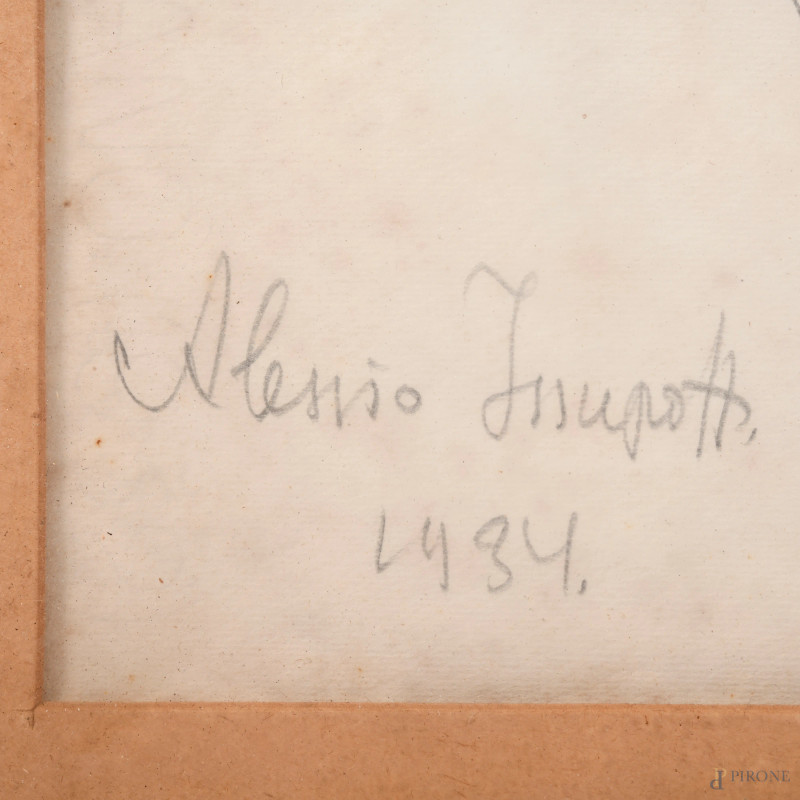 Alessio Issupoff,
1934.
PIRONE